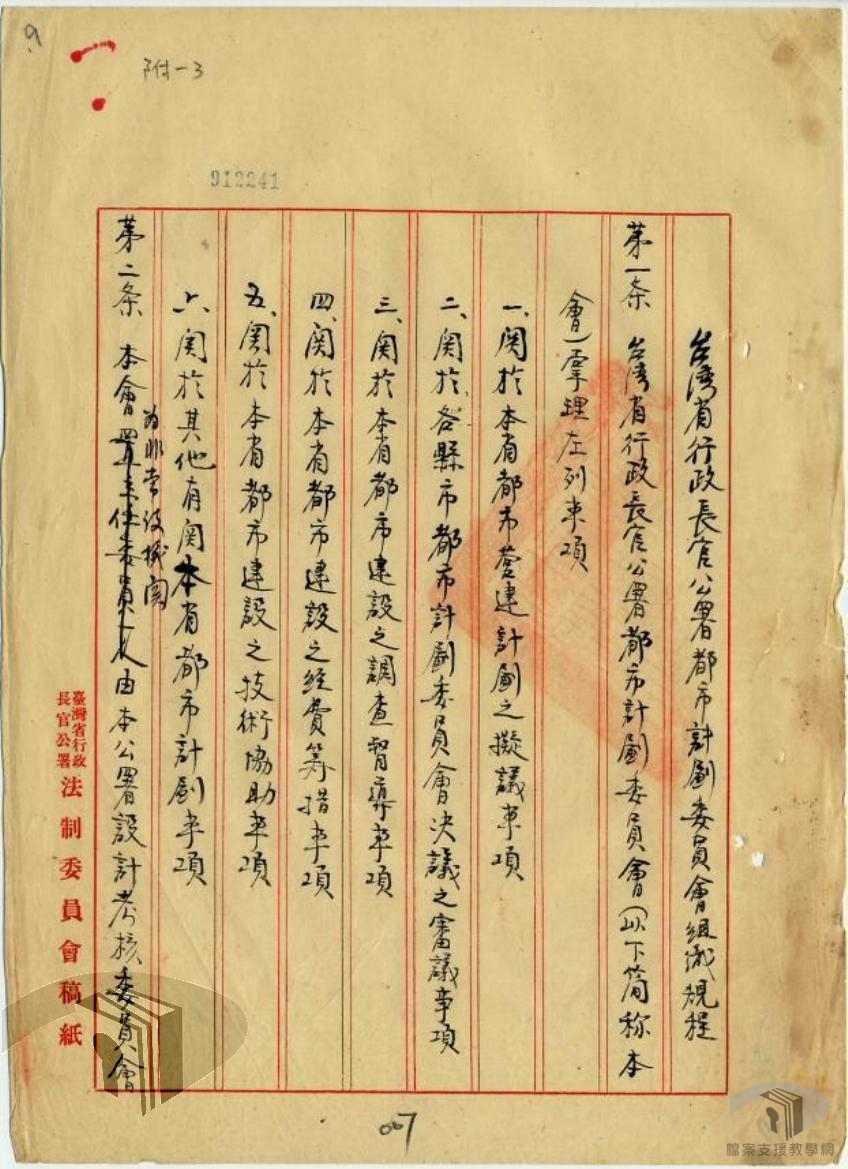 9
附一3
912241
台灣省行政長官公署都市計劃委員會組織規程
第一条 台灣省行政長官公署都市計劃委員會(以下简称本
會)掌理左列事項
一、関於本省都市营建計劃之擬議事項
二、関於各縣市都市計劃委員會決議之審議事項
三、関於本省都市建設之調查督導事項
四、関於本省都市建設之經費筹措事項
五、関於本省都市建設之技術協助事項
六、関於其他有関本省都市計劃事項
第二条 本會置主任委員一人由本公署設計考核委員會
為非常設機関
臺灣省行政長官公署法制委員會稿紙
007
檔案支援教學網